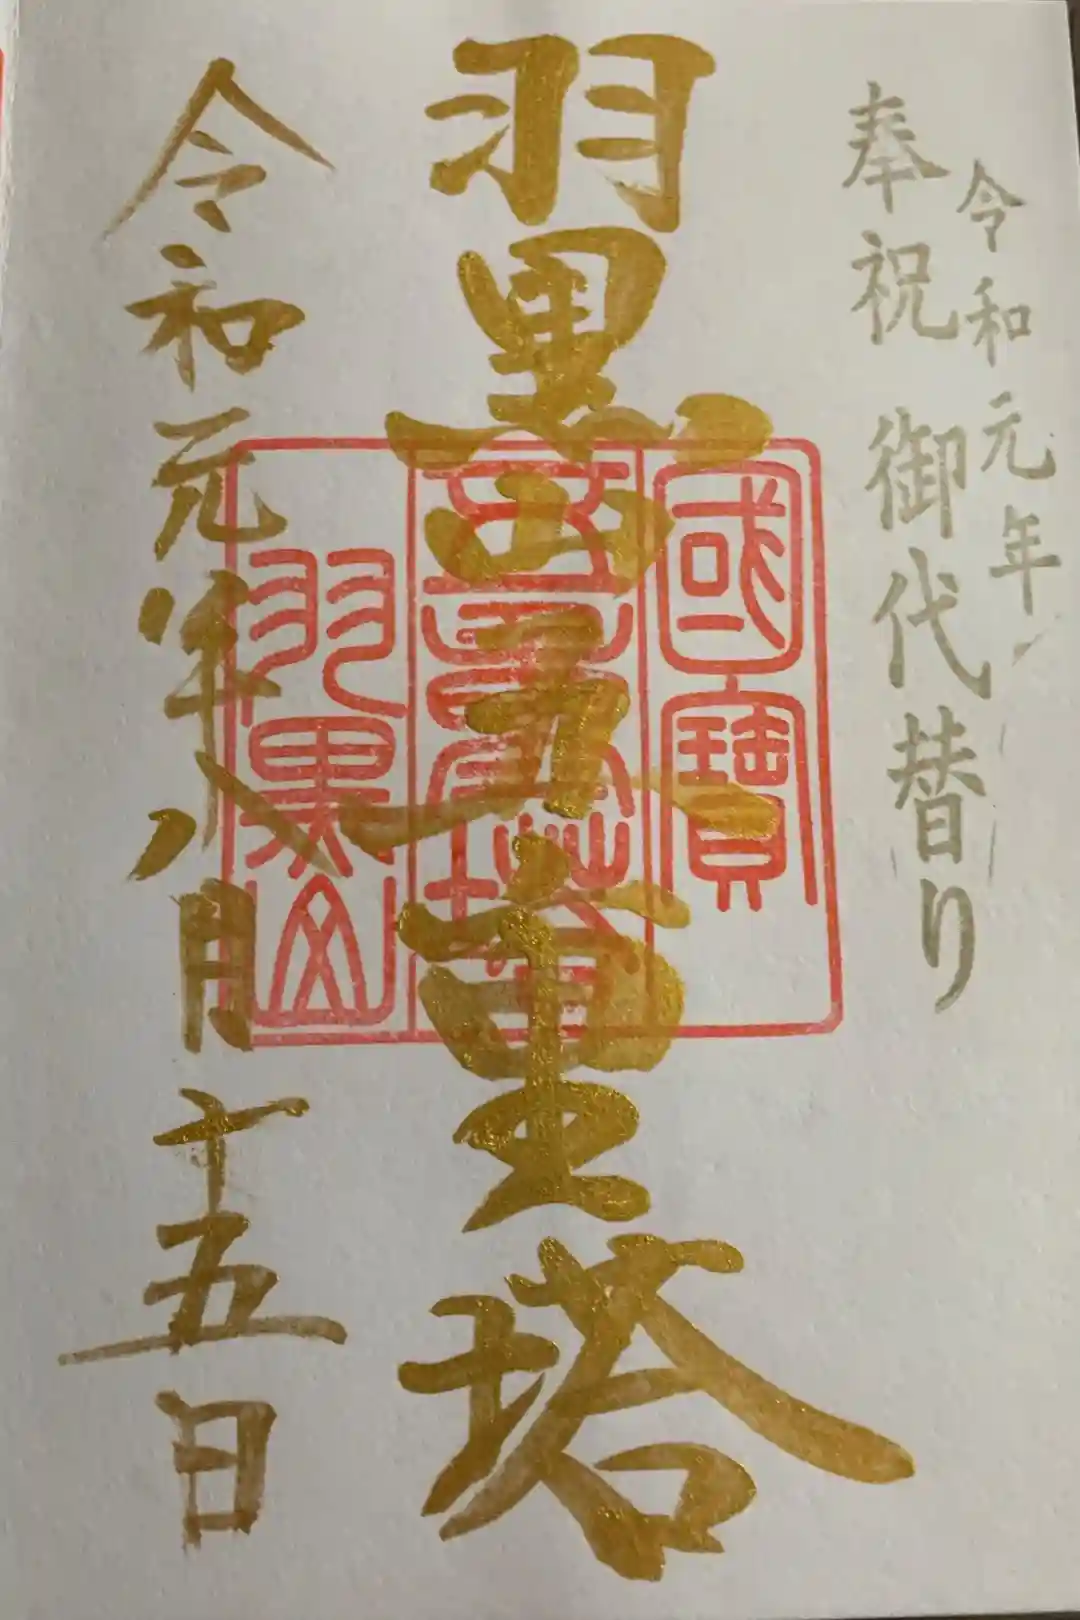 令和元年
奉祝 御代替り
羽黒山五重塔
國寶
五重塔
羽黒山
令和元年八月十五日